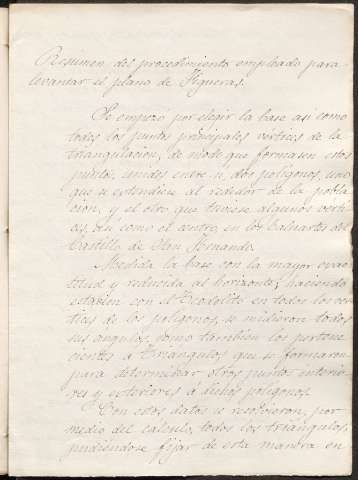 Resúmen del procedimiento empleado para
levantar el plano de Figueras.
Se empezó por elegir la base así como
todos los puntos principales vertices de la
triangulacion, de modo que formasen estos
puntos, unidos entre si, dos poligonos, uno
que se estendiese al rededor de la pobla
cion, y el otro que tuviese algunos verti
ces, asi como el centro, en los baluartes del
Castillo de San Fernando.
Medida la base con la mayor exac
titud y reducida al horizonte; haciendo
estacion con el Teodolito en todos los verti
ces de los poligonos, se midieron todos
sus angulos, como tambien los pertene
cientes á triángulos que se formaron
para determinar otros puntos interio
res y esteriores á dichos poligonos.
Con estos datos se resolvieron, por
medio del calculo, todos los triángulos,
pudiendose fijar de esta manera en